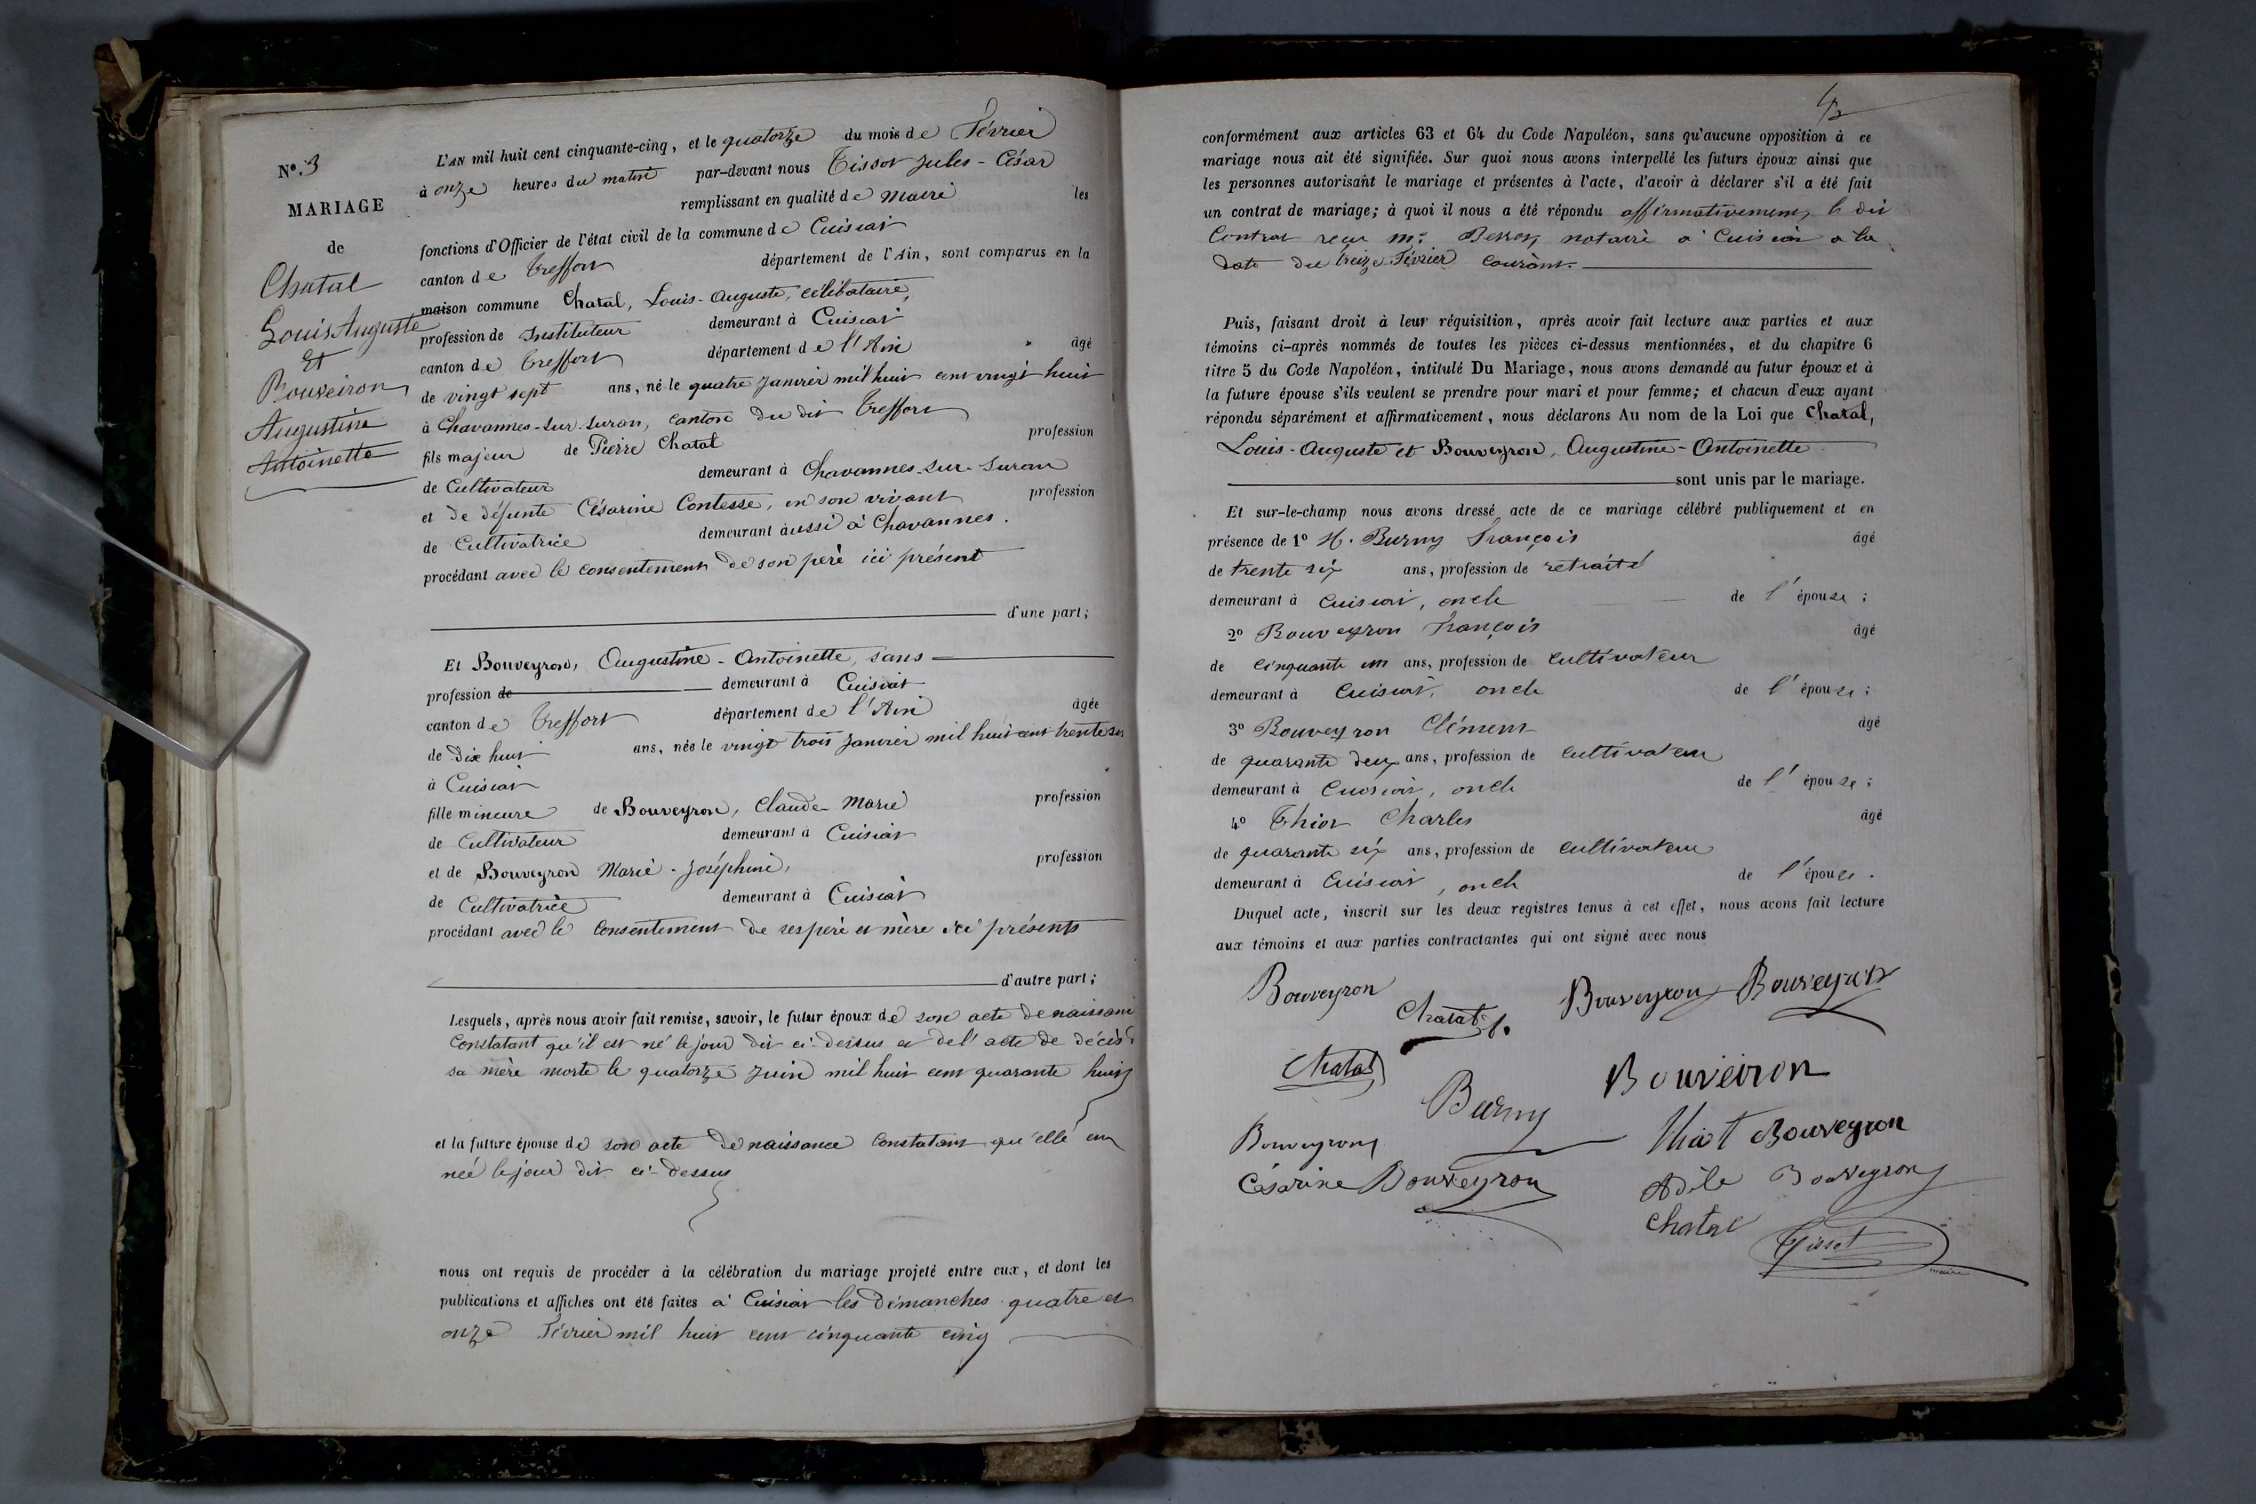 N°. 3
MARIAGE
de
Chatal
Louis Auguste
Et
Bouveiron
Augustine
Antoinette
L'AN mil huit cent cinquante-cinq, et le quatorze du mois de Février
à onze heures du matin par-devant nous Tissot Jules-César
remplissant en qualité de Maire les
fonctions d'Officier de l'état civil de la commune de Cuisiat
canton de Treffort département de l'Ain, sont comparus en la
maison commune Chatal, Louis-Auguste, célibataire,
profession de Instituteur demeurant à Cuisiat
canton de Treffort département de l'Ain âgé
de vingt sept ans, né le quatre Janvier mil huit cent vingt huit
à Chavannes-sur-Suran, canton du dit Treffort
fils majeur de Pierre Chatal profession
de Cultivateur demeurant à Chavannes-sur-Suran
et de défunte Césarine Contesse, en son vivant profession
de Cultivatrice demeurant aussi à Chavannes.
procédant avec le consentement de son père ici présent
d'une part;
Et Bouveyron, Augustine-Antoinette, sans
profession de demeurant à Cuisiat
canton de Treffort département de l'Ain âgée
de Dix huit ans, née le vingt trois Janvier mil huit cent trente
à Cuisiat
fille mineure de Bouveyron, Claude-Marie profession
de Cultivateur demeurant à Cuisiat
et de Bouveyron Marie-Joséphine, profession
de Cultivatrice demeurant à Cuisiat
procédant avec le consentement de ses père et mère ici présents
d'autre part;
Lesquels, après nous avoir fait remise, savoir, le futur époux de son acte de naissance
constatant qu'il est né le jour dit ci-dessus et de l'acte de décès de
sa mère morte le quatorze Juin mil huit cent quarante huit
et la future épouse de son acte de naissance constatant qu'elle est
née le jour dit ci-dessus
nous ont requis de procéder à la célébration du mariage projeté entre eux, et dont les
publications et affiches ont été faites à Cuisiat les Dimanches quatre et
onze Février mil huit cent cinquante cinq
conformément aux articles 63 et 64 du Code Napoléon, sans qu'aucune opposition à ce
mariage nous ait été signifiée. Sur quoi nous avons interpellé les futurs époux ainsi que
les personnes autorisant le mariage et présentes à l'acte, d'avoir à déclarer s'il a été fait
un contrat de mariage; à quoi il nous a été répondu affirmativement, le dit
Contrat reçu Me. notaire à Cuisiat à la
date du treize Février courant.
Puis, faisant droit à leur réquisition, après avoir fait lecture aux parties et aux
témoins ci-après nommés de toutes les pièces ci-dessus mentionnées, et du chapitre 6
titre 5 du Code Napoléon, intitulé Du Mariage, nous avons demandé au futur époux et à
la future épouse s'ils veulent se prendre pour mari et pour femme; et chacun d'eux ayant
répondu séparément et affirmativement, nous déclarons Au nom de la Loi que Chatal,
Louis-Auguste et Bouveyron, Augustine-Antoinette
sont unis par le mariage.
Et sur-le-champ nous avons dressé acte de ce mariage célébré publiquement et en
présence de 1° M. Burny François âgé
de trente six ans, profession de retraité
demeurant à Cuisiat, oncle de l'épouse;
2° Bouveyron François âgé
de cinquante un ans, profession de cultivateur
demeurant à Cuisiat, oncle de l'épouse;
3° Bouveyron Clément âgé
de quarante deux ans, profession de cultivateur
demeurant à Cuisiat, oncle de l'épouse;
4° Thiot Charles âgé
de quarante six ans, profession de cultivateur
demeurant à Cuisiat, oncle de l'épouse.
Duquel acte, inscrit sur les deux registres tenus à cet effet, nous avons fait lecture
aux témoins et aux parties contractantes qui ont signé avec nous
Bouveyron Chatal Bouveyron Bouveyron
Chatal
Burny Bouveiron
Bouveyron Thiot Bouveyron
Césarine Bouveyron Adèle Bouveyron
Chatal
Tissot
maire